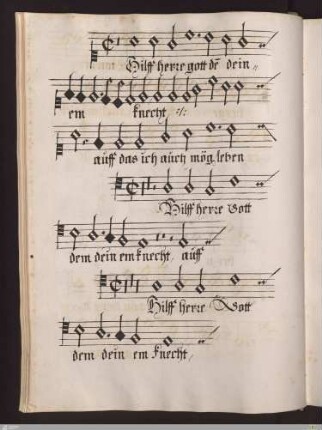 Hilff herre gott dē dein
em knecht, :/:
auff das ich auch mög leben
Hilff herre Gott
dem dein em knecht, auff
Hilff herre Gott
dem dein em knecht,